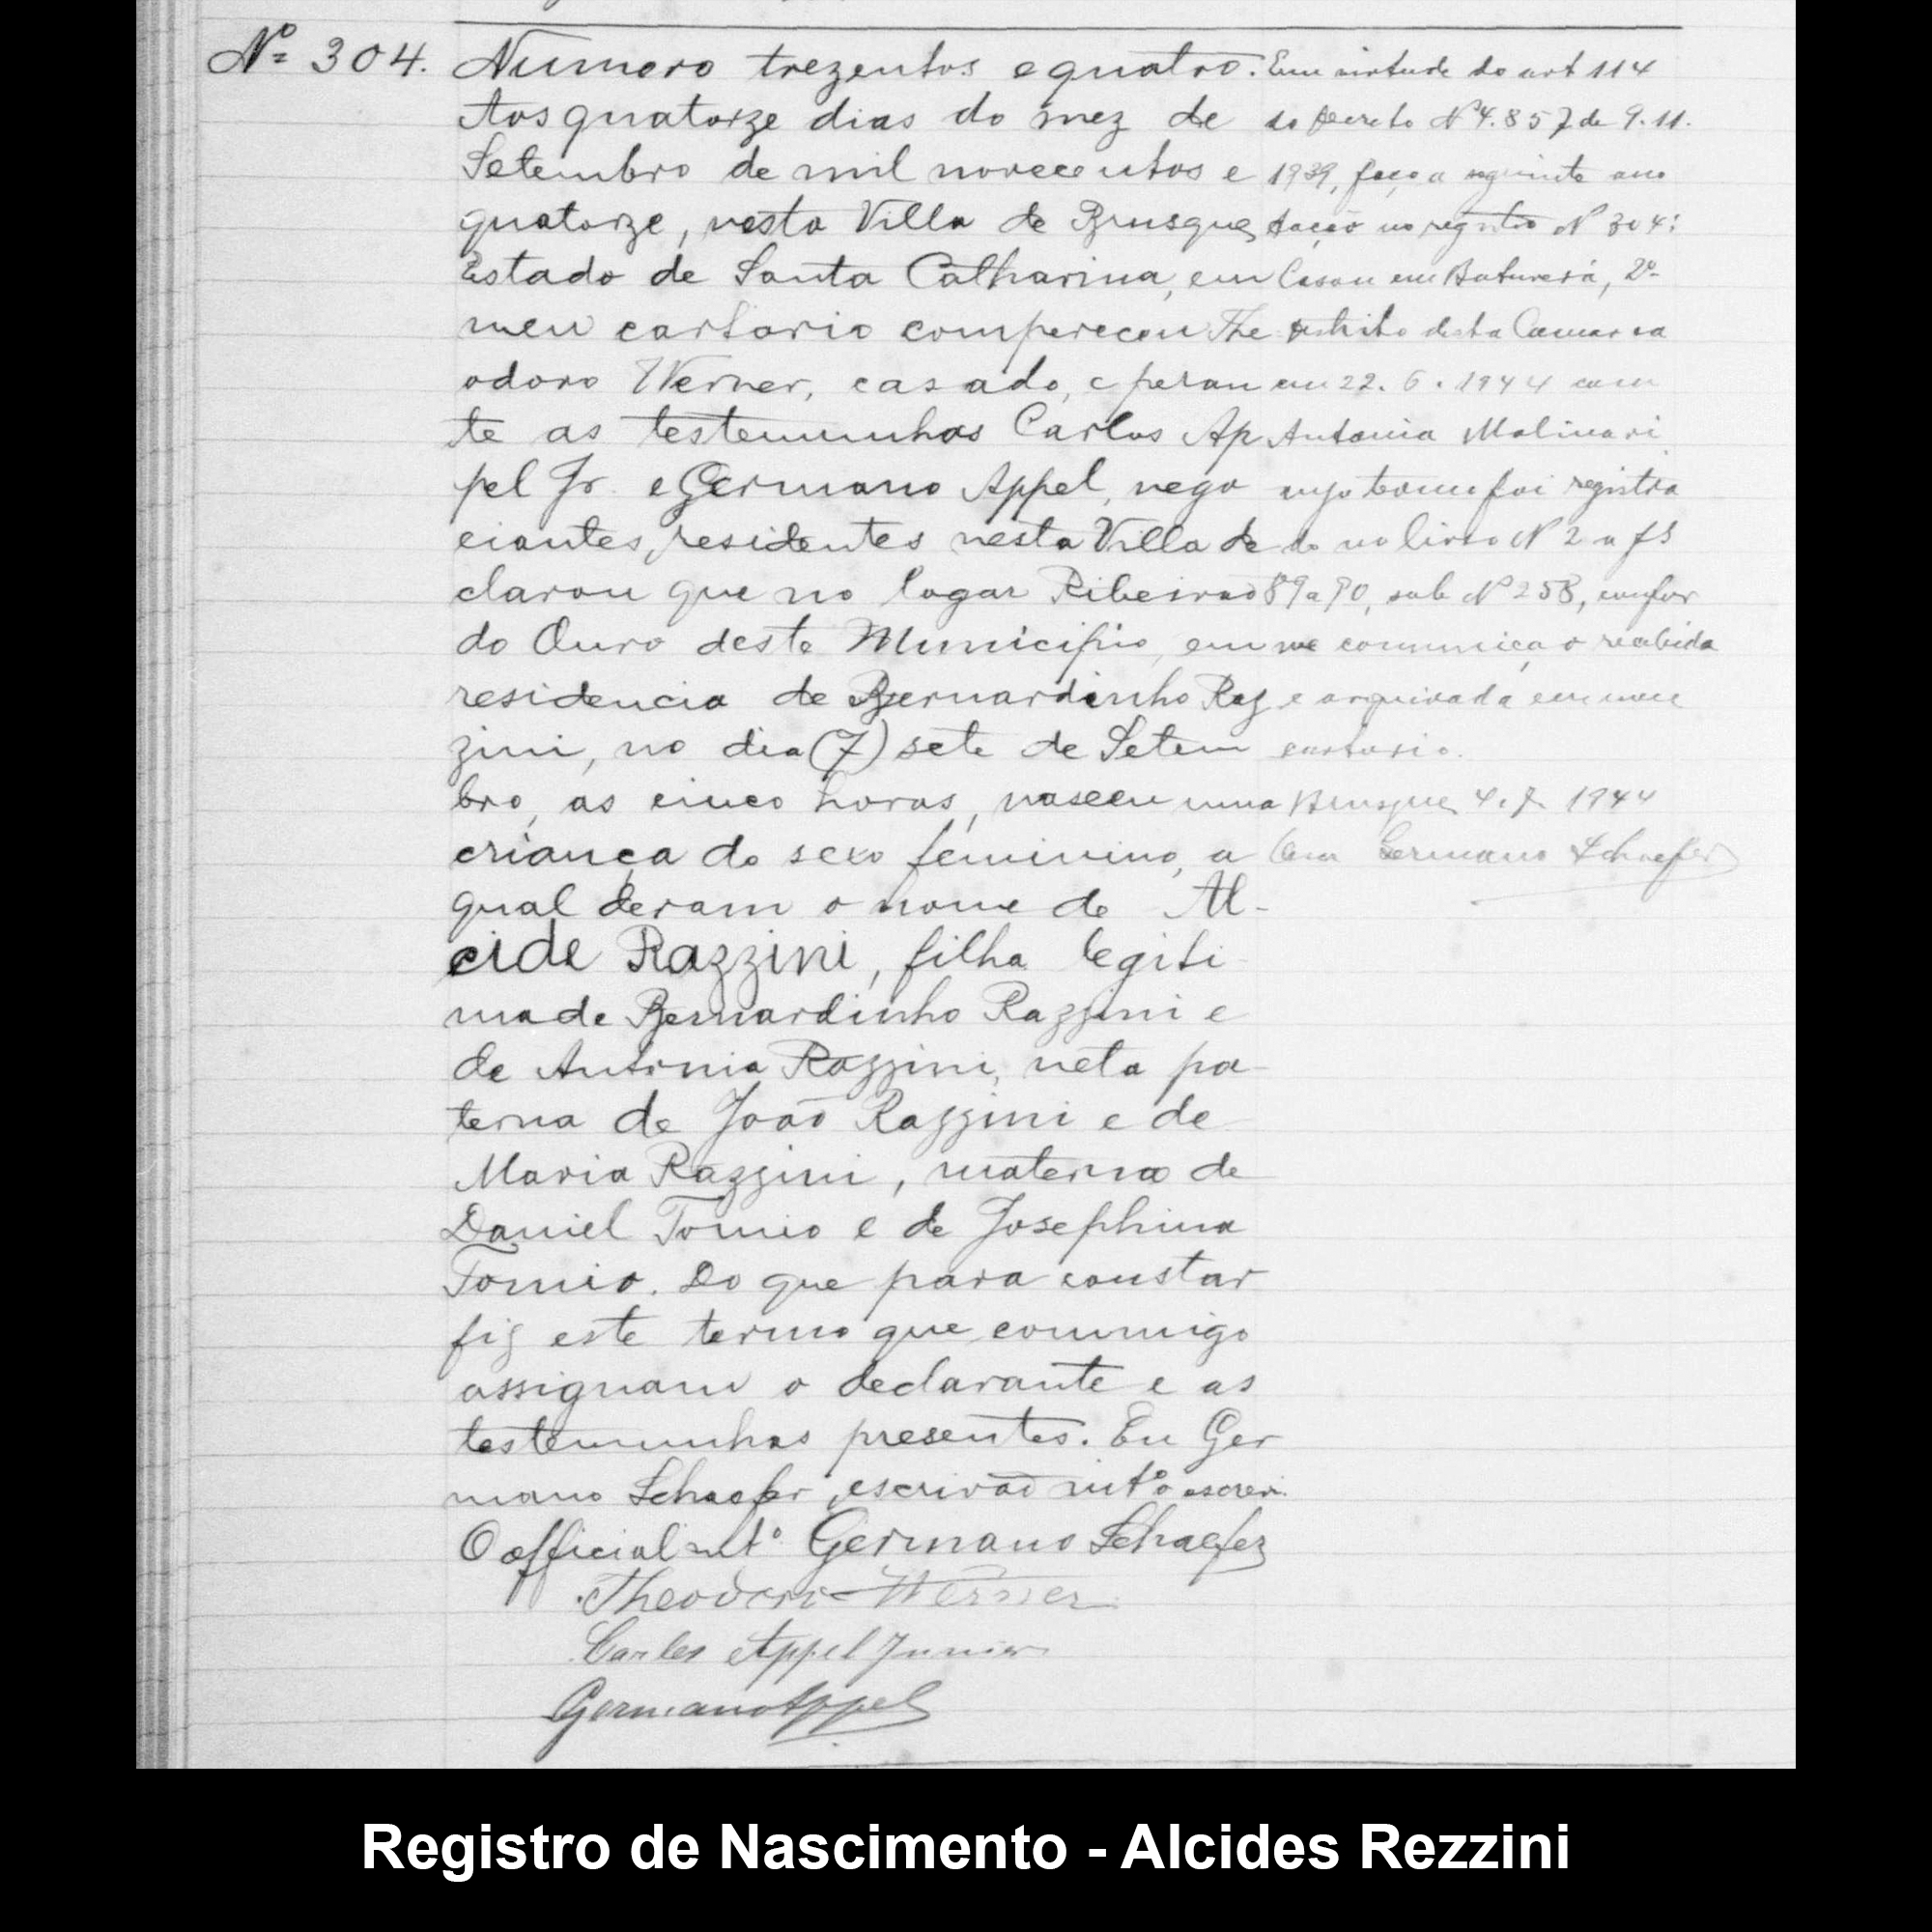 Nº 304.
Numero trezentos e quatro.
Aos quatorze dias do mez de
Setembro de mil novecentos e
quatorze, nesta Villa de Brusque,
Estado de Santa Catharina, em
meu cartorio compareceu The
odoro Werner, casado, e peran
te as testemunhas Carlos Ap
pel Jr. e Germano Appel, nego
ciantes, residentes nesta Villa de
clarou que no logar Ribeirão
do Ouro deste Municipio, em
residencia de Bernardinho Raz
zini, no dia (7) sete de Setem
bro, as cinco horas, nasceu uma
criança do sexo feminino, a
qual deram o nome de Al-
cide Razzini, filha legiti
ma de Bernardinho Razzini e
de Antonia Razzini, neta pa-
terna de João Razzini e de
Maria Razzini, materna de
Daniel Tomio e de Josephina
Tomio. Do que para constar
fiz este termo que commigo
assignam o declarante e as
testemunhas presentes. Eu Ger
mano Schaefer, escrivão intº o escrevi.
O official intº Germano Schaefer
Theodoro Werner
Carlos Appel Junior
Germano Appel
Em virtude do art 114
do Decreto Nº 4.857 de 9.11.
1939, faço a seguinte ano
tação no registro Nº 304:
Casou em Botuverá, 2º
distrito desta Comarca
em 22.6.1944 com
Antonia Molinari
cujo termo foi registra
do no livro Nº 2 a fs
89 a 90, sob Nº 258, confor
me comunicação recebida
e arquivada em meu
cartorio.
Brusque, 4.7.1944
Germano Schaefer
Registro de Nascimento - Alcides Rezzini